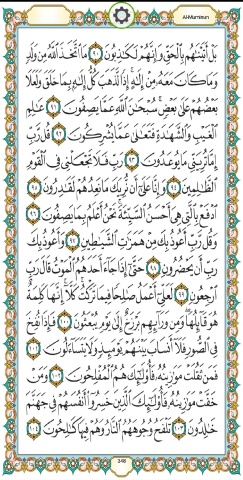 Al-Mu'minun
بَلْ أَتَيْنَٰهُم بِٱلْحَقِّ وَإِنَّهُمْ لَكَٰذِبُونَ ٩٠ مَا ٱتَّخَذَ ٱللَّهُ مِن وَلَدٍ
وَمَا كَانَ مَعَهُۥ مِنْ إِلَٰهٍ إِذًا لَّذَهَبَ كُلُّ إِلَٰهٍۭ بِمَا خَلَقَ وَلَعَلَا
بَعْضُهُمْ عَلَىٰ بَعْضٍ سُبْحَٰنَ ٱللَّهِ عَمَّا يَصِفُونَ ٩١ عَٰلِمِ
ٱلْغَيْبِ وَٱلشَّهَٰدَةِ فَتَعَٰلَىٰ عَمَّا يُشْرِكُونَ ٩٢ قُل رَّبِّ
إِمَّا تُرِيَنِّى مَا يُوعَدُونَ ٩٣ رَبِّ فَلَا تَجْعَلْنِى فِى ٱلْقَوْمِ
ٱلظَّٰلِمِينَ ٩٤ وَإِنَّا عَلَىٰٓ أَن نُّرِيَكَ مَا نَعِدُهُمْ لَقَٰدِرُونَ ٩٥
ٱدْفَعْ بِٱلَّتِى هِىَ أَحْسَنُ ٱلسَّيِّئَةَ نَحْنُ أَعْلَمُ بِمَا يَصِفُونَ ٩٦
وَقُل رَّبِّ أَعُوذُ بِكَ مِنْ هَمَزَٰتِ ٱلشَّيَٰطِينِ ٩٧ وَأَعُوذُ بِكَ
رَبِّ أَن يَحْضُرُونِ ٩٨ حَتَّىٰٓ إِذَا جَآءَ أَحَدَهُمُ ٱلْمَوْتُ قَالَ رَبِّ
ٱرْجِعُونِ ٩٩ لَعَلِّىٓ أَعْمَلُ صَٰلِحًا فِيمَا تَرَكْتُ كَلَّآ إِنَّهَا كَلِمَةٌ
هُوَ قَآئِلُهَا وَمِن وَرَآئِهِم بَرْزَخٌ إِلَىٰ يَوْمِ يُبْعَثُونَ ١٠٠ فَإِذَا نُفِخَ
فِى ٱلصُّورِ فَلَآ أَنسَابَ بَيْنَهُمْ يَوْمَئِذٍ وَلَا يَتَسَآءَلُونَ ١٠١
فَمَن ثَقُلَتْ مَوَٰزِينُهُۥ فَأُو۟لَٰٓئِكَ هُمُ ٱلْمُفْلِحُونَ ١٠٢ وَمَنْ
خَفَّتْ مَوَٰزِينُهُۥ فَأُو۟لَٰٓئِكَ ٱلَّذِينَ خَسِرُوٓا۟ أَنفُسَهُمْ فِى جَهَنَّمَ
خَٰلِدُونَ ١٠٣ تَلْفَحُ وُجُوهَهُمُ ٱلنَّارُ وَهُمْ فِيهَا كَٰلِحُونَ ١٠٤
348